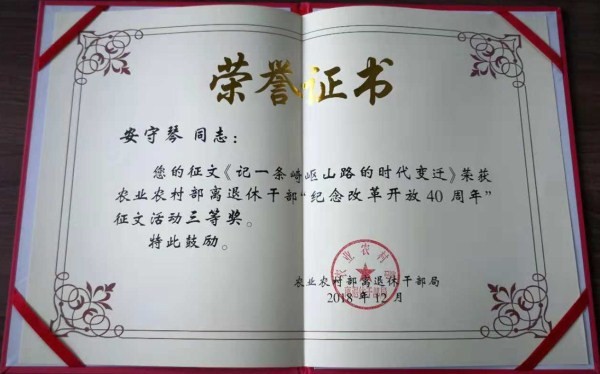 荣誉证书
安守琴 同志：
您的征文《记一条崎岖山路的时代变迁》荣获
农业农村部离退休干部“纪念改革开放40周年”
征文活动三等奖。
特此鼓励。
农业农村部
农业农村部离退休干部局
2018年12月